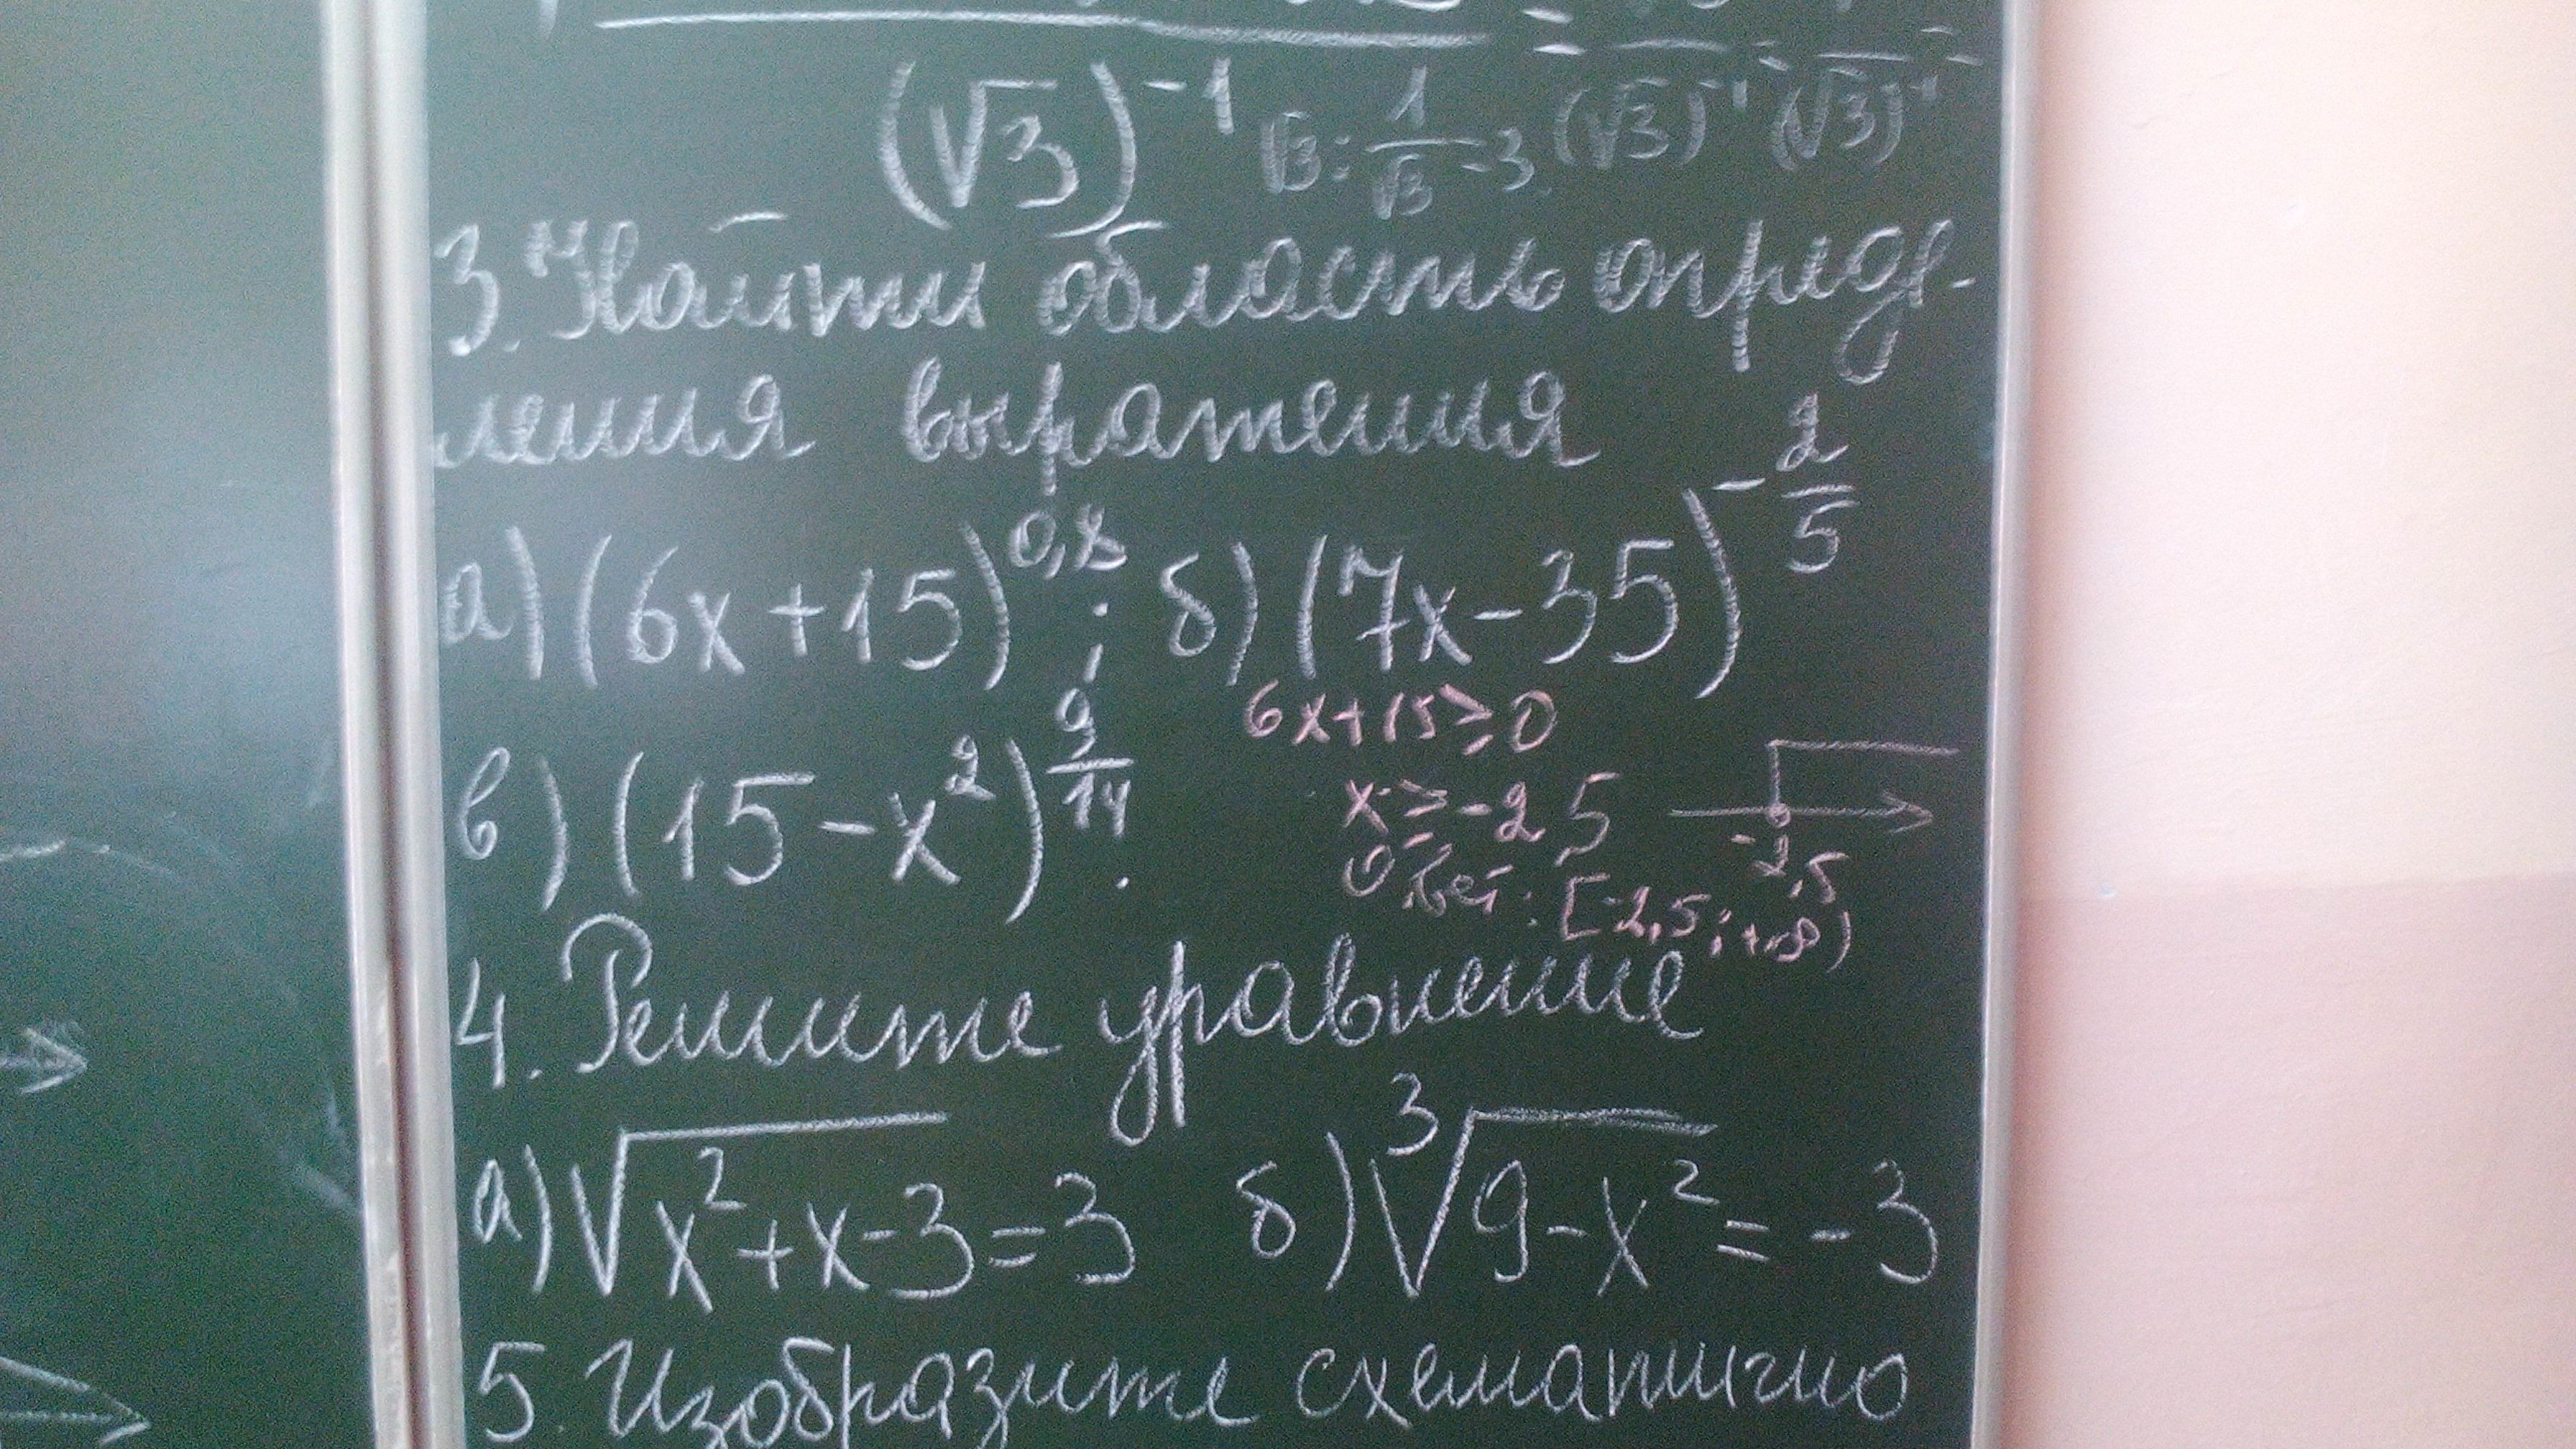 (√3)⁻¹ √3 : 1/√3 = 3. (√3)⁻¹ (√3)⁻¹
3. Найти область опреде-
ления выражения
а) (6x+15)^0,8 ; б) (7x-35)^(-2/5)
6x+15≥0
в) (15-x²)^(9/14) .
x≥-2,5
-2,5
Ответ: [-2,5;+∞)
4. Решите уравнение
а) √(x²+x-3)=3 б) ³√(9-x²)=-3
5. Изобразите схематично